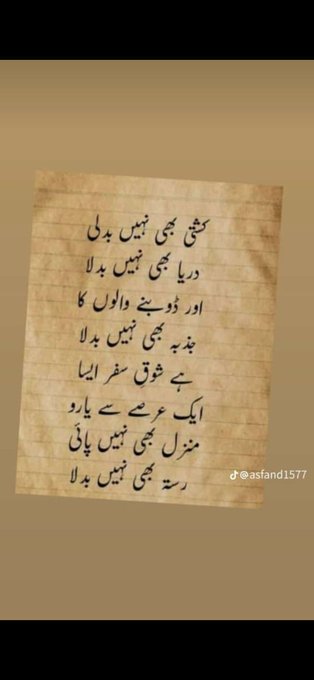 کشتی بھی نہیں بدلی
دریا بھی نہیں بدلا
اور ڈوبنے والوں کا
جذبہ بھی نہیں بدلا
ہے شوقِ سفر ایسا
ایک عرصے سے یارو
منزل بھی نہیں پائی
رستہ بھی نہیں بدلا
@asfand1577